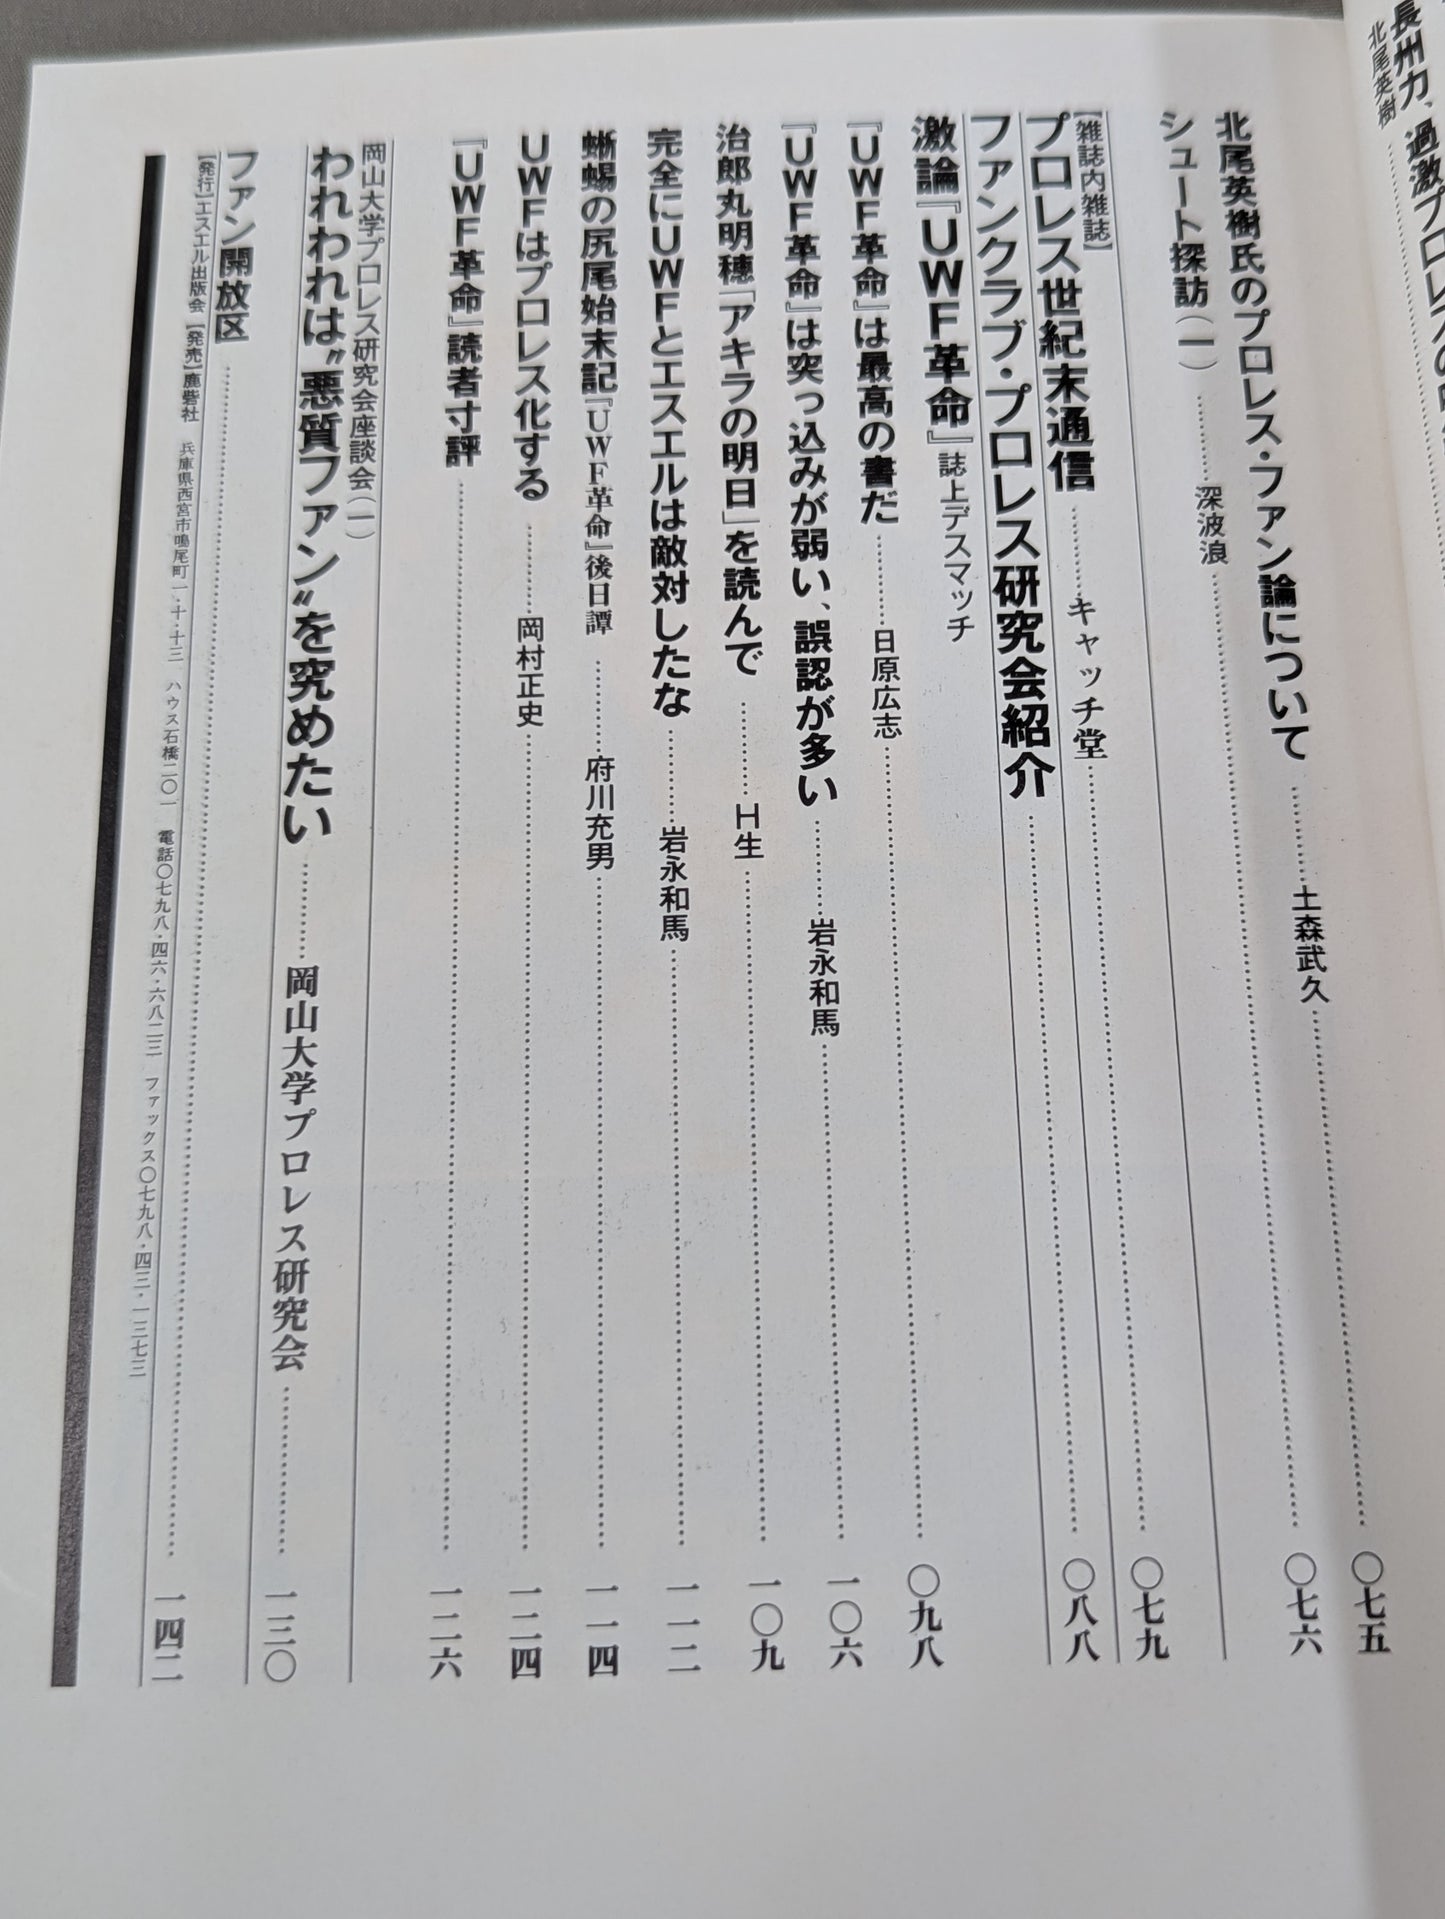 長州力、過激プロレスの
北尾英樹……〇七五
北尾英樹氏のプロレス・ファン論について……土森武久……〇七六
シュート探訪(一)……深波浪……〇七九
【雑誌内雑誌】
プロレス世紀末通信……キャッチ堂……〇八八
ファンクラブ・プロレス研究会紹介……〇九八
激論『UWF革命』誌上デスマッチ
『UWF革命』は最高の書だ……日原広志……一〇六
『UWF革命』は突っ込みが弱い、誤認が多い……岩永和馬……一〇九
治郎丸明穂「アキラの明日」を読んで……H生……一一二
完全にUWFとエスエルは敵対したな……岩永和馬……一一四
蜥蜴の尻尾始末記『UWF革命』後日譚……府川充男……一二四
UWFはプロレス化する……岡村正史……一二六
『UWF革命』読者寸評……一三〇
岡山大学プロレス研究会座談会(一)
われわれは〝悪質ファン〟を究めたい……岡山大学プロレス研究会……一四二
ファン開放区……
【発行】エスエル出版会 【発売】鹿砦社 兵庫県西宮市鳴尾町一・十・十三 ハウス石橋二〇一 電話〇七九八・四六・六八二三 ファックス〇七九八・四三・一三七三